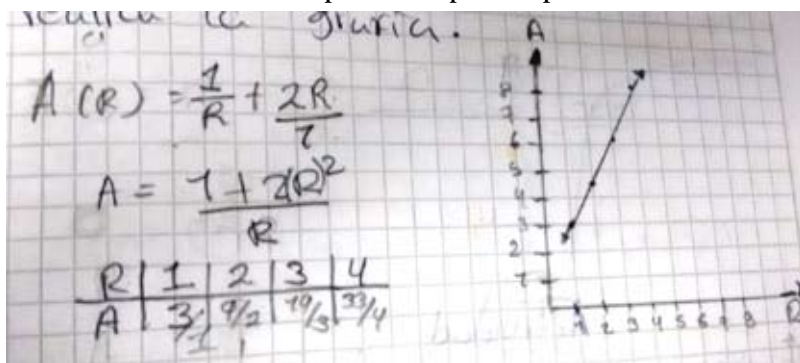 grafica.
A (R) = 1/R + 2R/1
A = 1 + 2(R)² / R
R | 1 | 2 | 3 | 4
A | 3/1 | 9/2 | 19/3 | 33/4
A
8
7
6
5
4
3
2
1
1 2 3 4 5 6 7 8 R